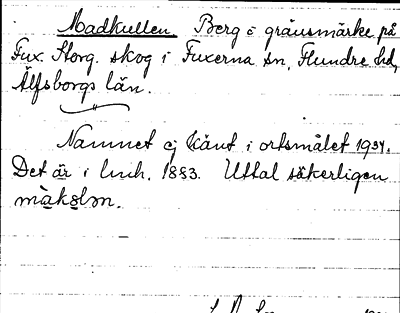 Madkullen. Berg o gränsmärke på
Fux. Storg. skog i Fuxerna sn, Flundre hd,
Älfsborgs län.
Namnet ej känt i ortsmålet 1934.
Det är i lmh. 1883. Uttal säkerligen